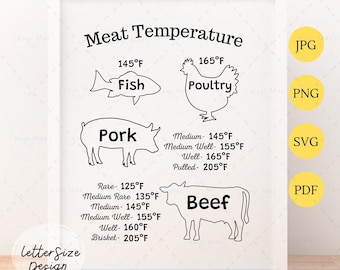 Meat Temperature
145°F
Fish
165°F
Poultry
Pork
Medium- 145°F
Medium Well- 155°F
Well- 165°F
Pulled- 205°F
Rare- 125°F
Medium Rare 135°F
Medium- 145°F
Medium Well- 155°F
Well- 160°F
Brisket- 205°F
Beef
JPG
PNG
SVG
PDF
LetterSize
Design